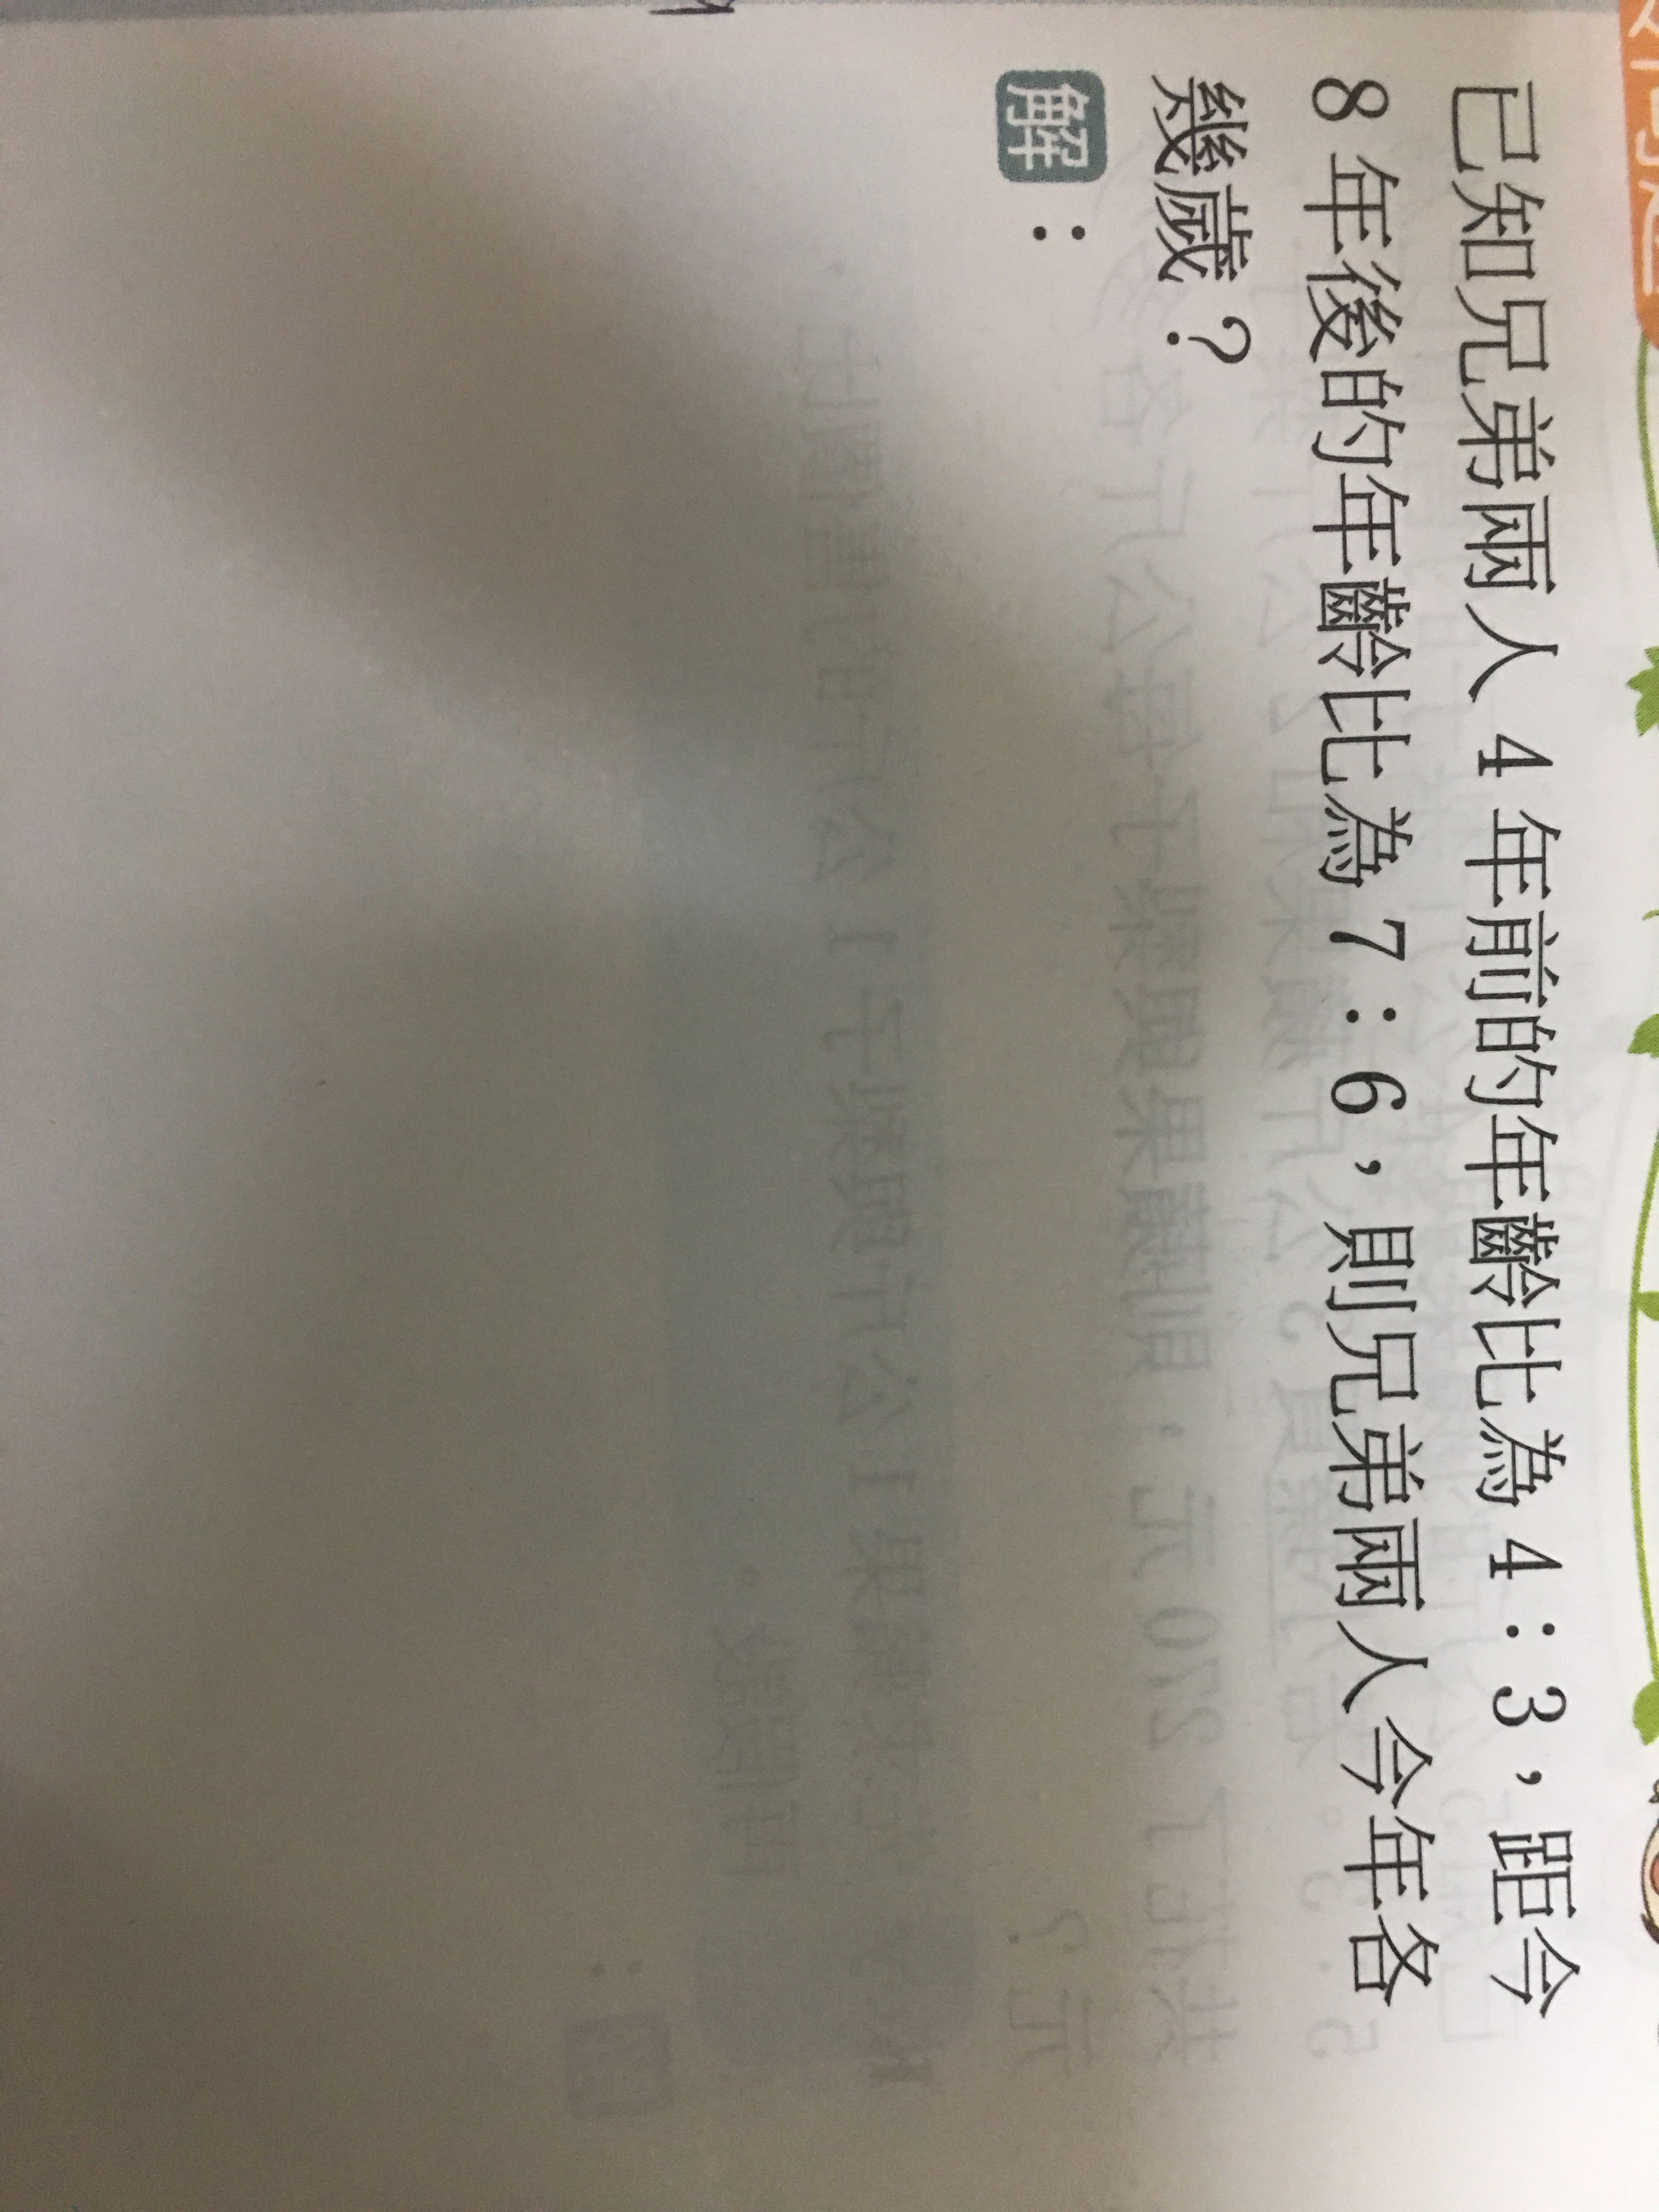 已知兄弟兩人 4 年前的年齡比為 4：3，距今
8 年後的年齡比為 7：6，則兄弟兩人今年各
幾歲？
解：